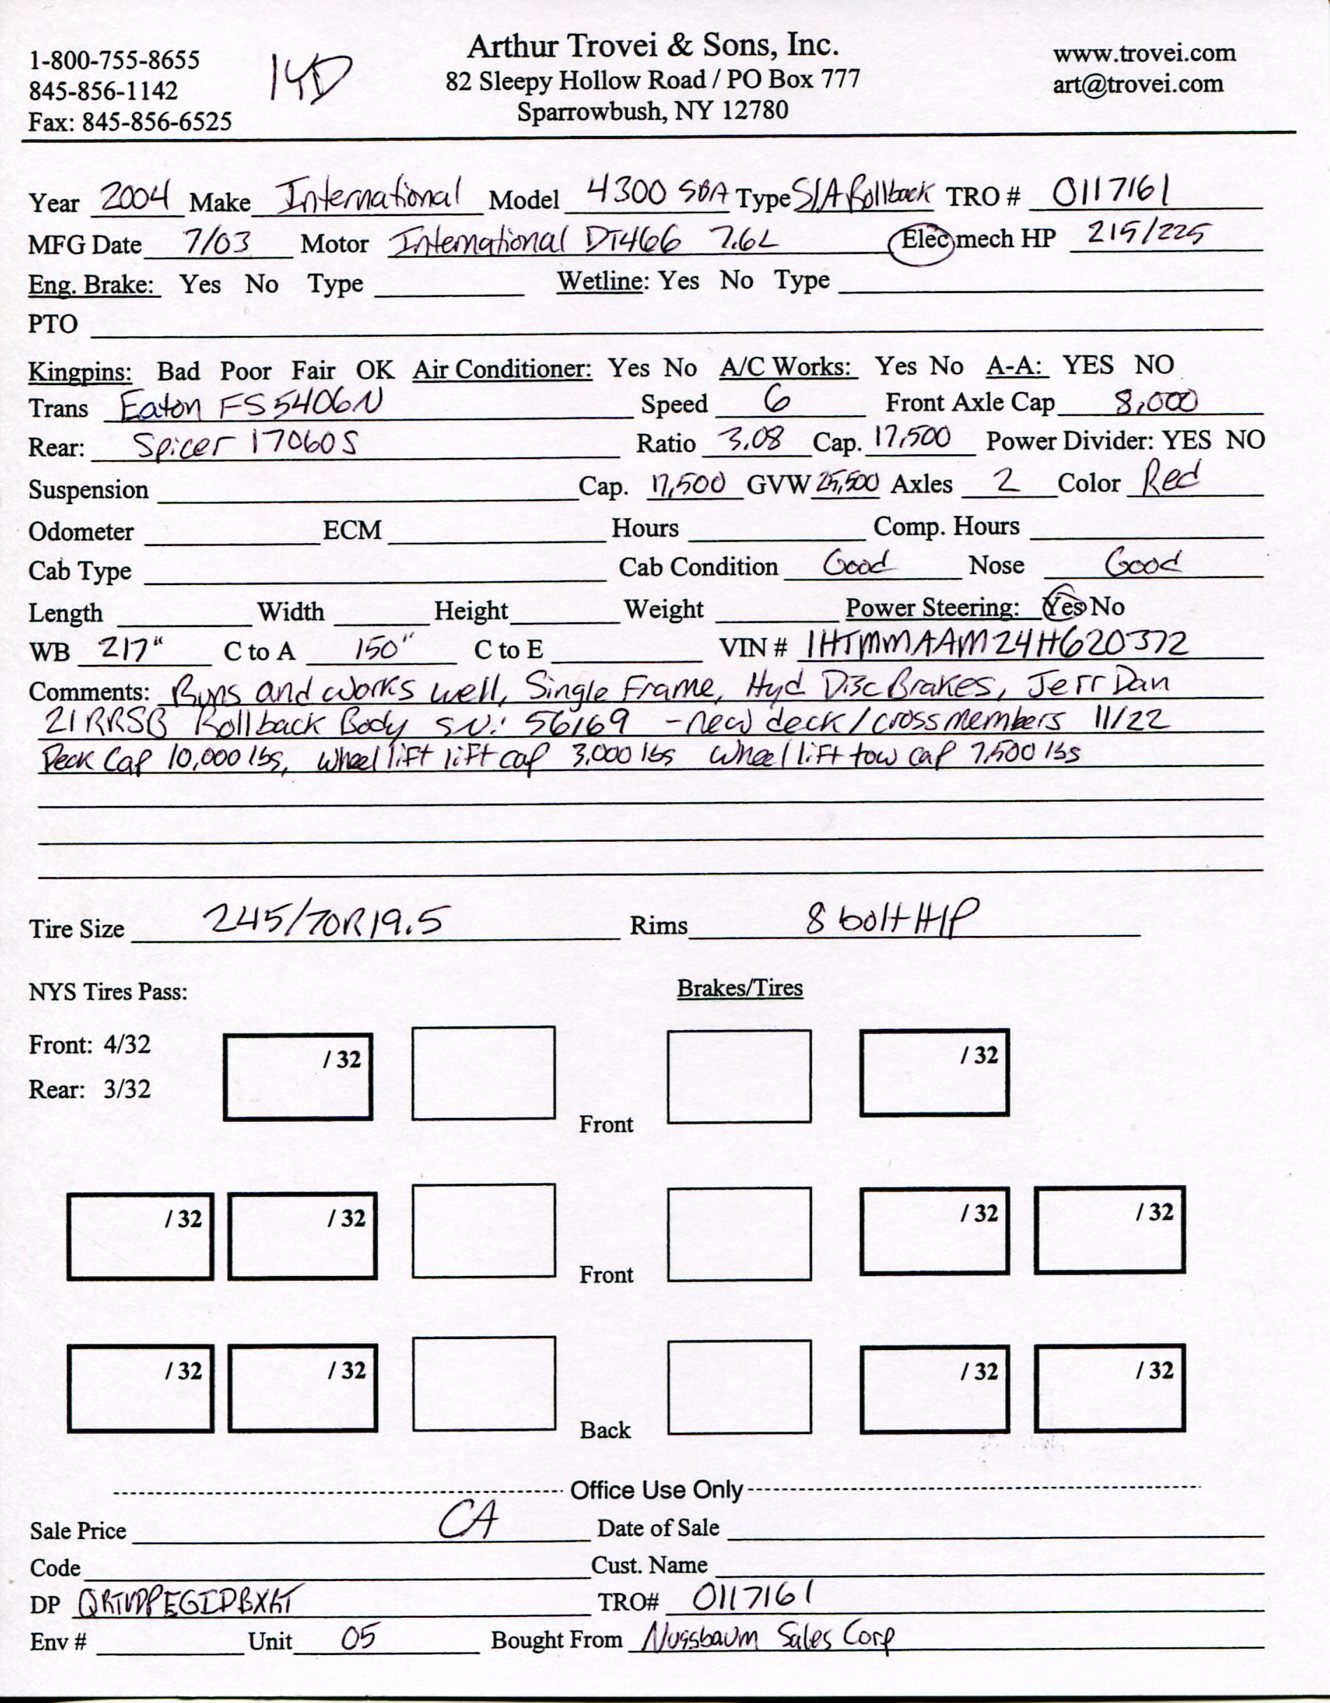 1-800-755-8655
845-856-1142
Fax: 845-856-6525
14D
Arthur Trovei & Sons, Inc.
82 Sleepy Hollow Road / PO Box 777
Sparrowbush, NY 12780
www.trovei.com
art@trovei.com
Year 2004 Make International Model 4300 SBA Type S/A Rollback TRO # 0117161
MFG Date 7/03 Motor International DT466 7.6L Elec mech HP 215/225
Eng. Brake: Yes No Type Wetline: Yes No Type
PTO
Kingpins: Bad Poor Fair OK Air Conditioner: Yes No A/C Works: Yes No A-A: YES NO
Trans Eaton FS5406N Speed 6 Front Axle Cap 8,000
Rear: Spicer 17060S Ratio 3.08 Cap. 17,500 Power Divider: YES NO
Suspension Cap. 17,500 GVW 25,500 Axles 2 Color Red
Odometer ECM Hours Comp. Hours
Cab Type Cab Condition Good Nose Good
Length Width Height Weight Power Steering: Yes No
WB 217" C to A 150" C to E VIN # 1HTMMAAM24H620372
Comments: Runs and works well, Single Frame, Hyd Disc Brakes, Jerr Dan
21RRSB Rollback Body S.N.: 56169 - new deck/crossmembers 11/22
Deck Cap 10,000 lbs, wheel lift lift cap 3,000 lbs wheel lift tow cap 7,500 lbs
Tire Size 245/70R19.5 Rims 8 bolt HP
NYS Tires Pass: Brakes/Tires
Front: 4/32
Rear: 3/32
/ 32 / 32
Front
/ 32 / 32 / 32 / 32
Front
/ 32 / 32 / 32 / 32
Back
Office Use Only
Sale Price CA Date of Sale
Code Cust. Name
DP TRO# 0117161
Env # Unit 05 Bought From Nussbaum Sales Corp